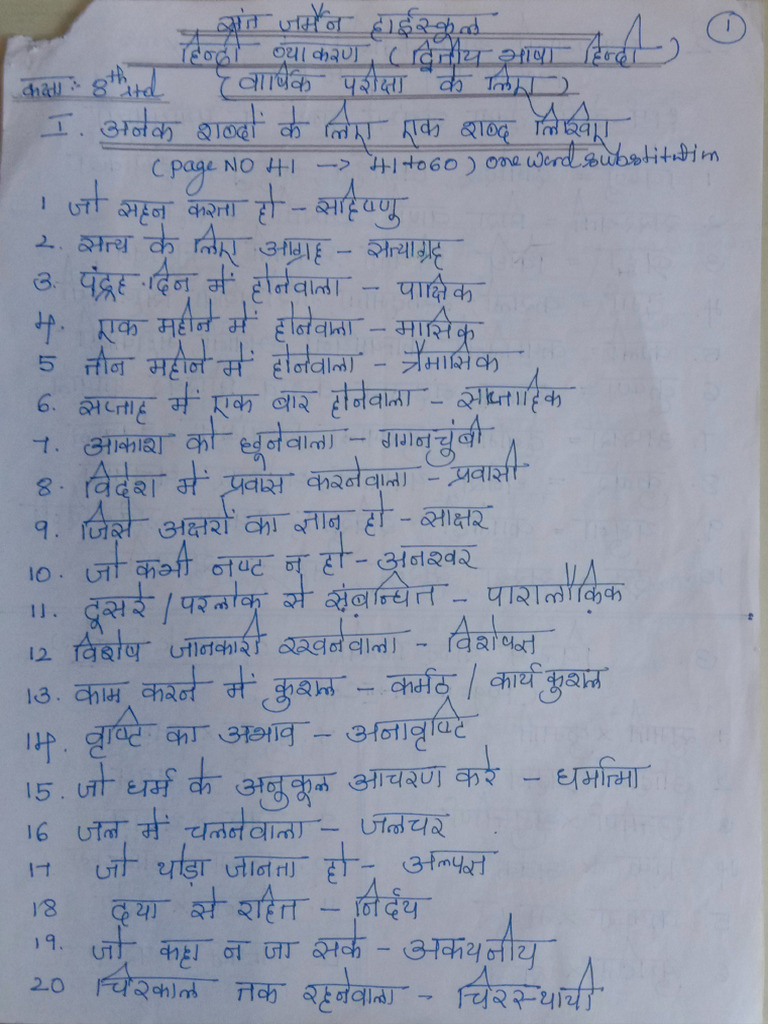 1
संत जर्मैन हाईस्कूल
हिन्दी व्याकरण (द्वितीय भाषा हिन्दी)
कक्षाः- 8th std (वार्षिक परीक्षा के लिए)
I. अनेक शब्दों के लिए एक शब्द लिखिए
(page NO 41 -> 41 to 60) one word substitution
1 जो सहन करता हो - सहिष्णु
2. सत्य के लिए आग्रह - सत्याग्रह
3. पंद्रह दिन में होनेवाला - पाक्षिक
4. एक महीने में होनेवाला - मासिक
5 तीन महीने में होनेवाला - त्रैमासिक
6. सप्ताह में एक बार होनेवाला - साप्ताहिक
7. आकाश को छूनेवाला - गगनचुंबी
8. विदेश में प्रवास करनेवाला - प्रवासी
9. जिसे अक्षरों का ज्ञान हो - साक्षर
10. जो कभी नष्ट न हो - अनश्वर
11. दूसरे / परलोक से संबन्धित - पारालौकिक
12 विशेष जानकारी रखनेवाला - विशेषज्ञ
13. काम करने में कुशल - कर्मठ / कार्यकुशल
14. वृष्टि का अभाव - अनावृष्टि
15. जो धर्म के अनुकूल आचरण करे - धर्मात्मा
16 जल में चलनेवाला - जलचर
17 जो थोड़ा जानता हो - अल्पज्ञ
18 दया से रहित - निर्दय
19. जो कहा न जा सके - अकथनीय
20 चिरकाल तक रहनेवाला - चिरस्थायी